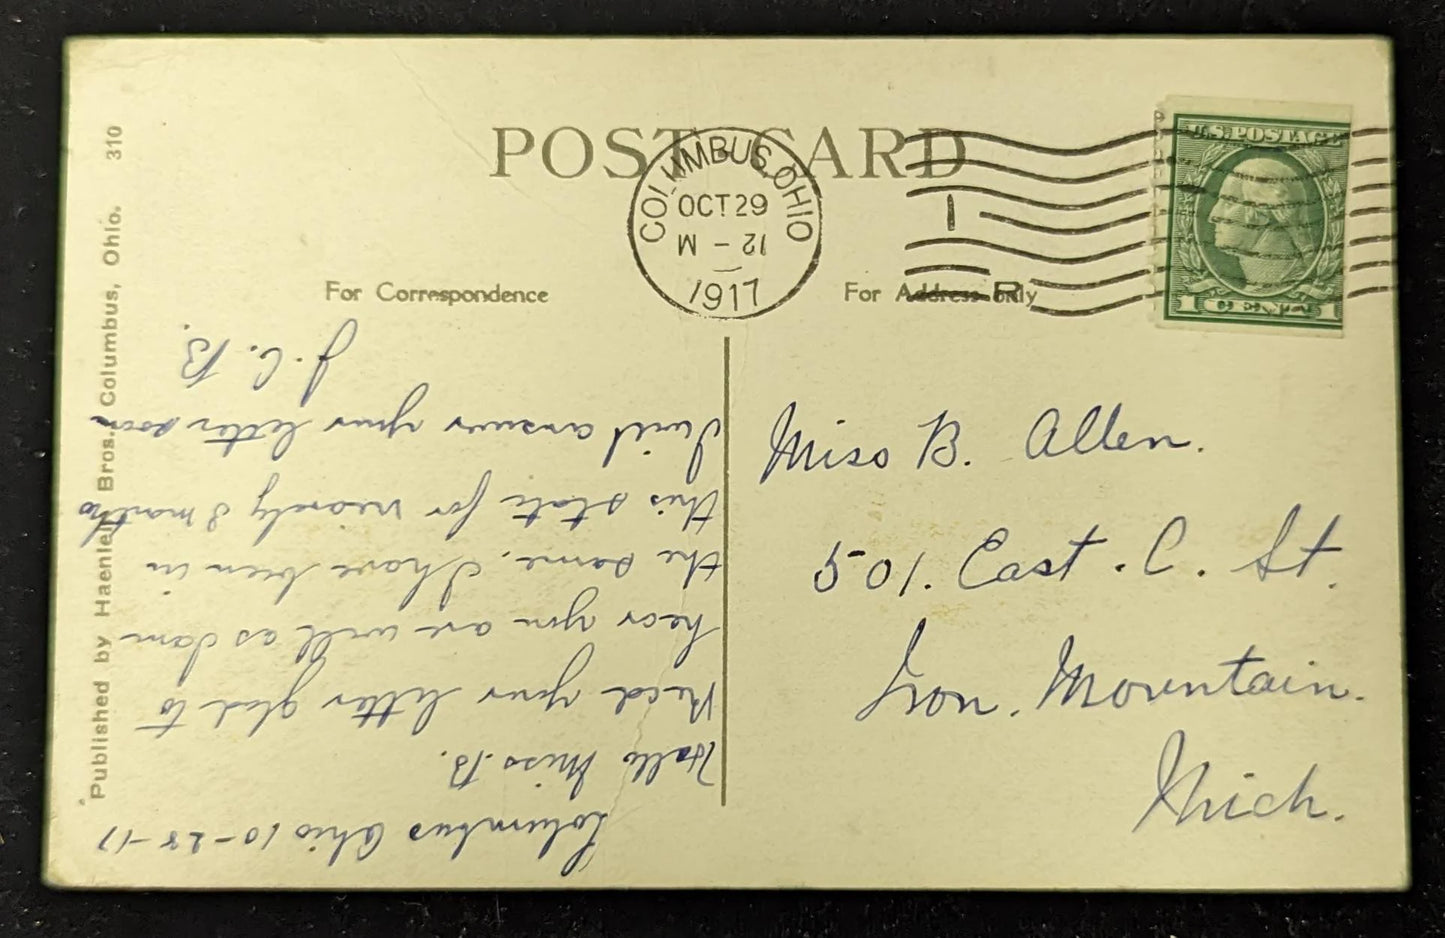 POST CARD
COLUMBUS, OHIO
OCT 29
12 - M
1917
1
R
U.S. POSTAGE
1 1
For Correspondence
For Address Only
Miss B. Allen.
501. East. C. St.
Iron. Mountain.
Mich.
Columbus Ohio 10-28-17
Hallo Miss. B.
Recd your letter glad to
hear you are well as I am
the same. I have been in
this state for nearly 3 months
I will answer your letter soon
J. C. B.
Published by Haenlein Bros., Columbus, Ohio. 310